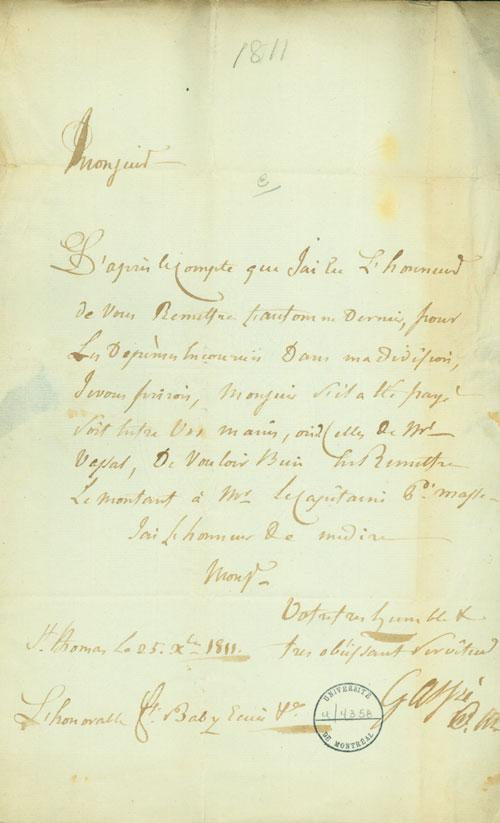 1811
Monsieur
D'après le Compte que Jai Eu L'honneur
de Vous Remettre Lautomne Dernier, pour
Les Depenses Encourües Dans ma division,
Je vous prirois, Monsieur s'il a Ete payé
soit Entre Vos mains, ou Celles de Mr.
Vassal, De Vouloir Bien En Remettre
Le montant à Mr. le Capitaine
Jai L'honneur De me dire
Monsr.
Votre tres humble &
St. Thomas Le 25. Xbre 1811. tres obéissant Serviteur
Gaspé
L'honorable Fs. Baby Ecuier &c
UNIVERSITÉ
U/4358
DE MONTRÉAL